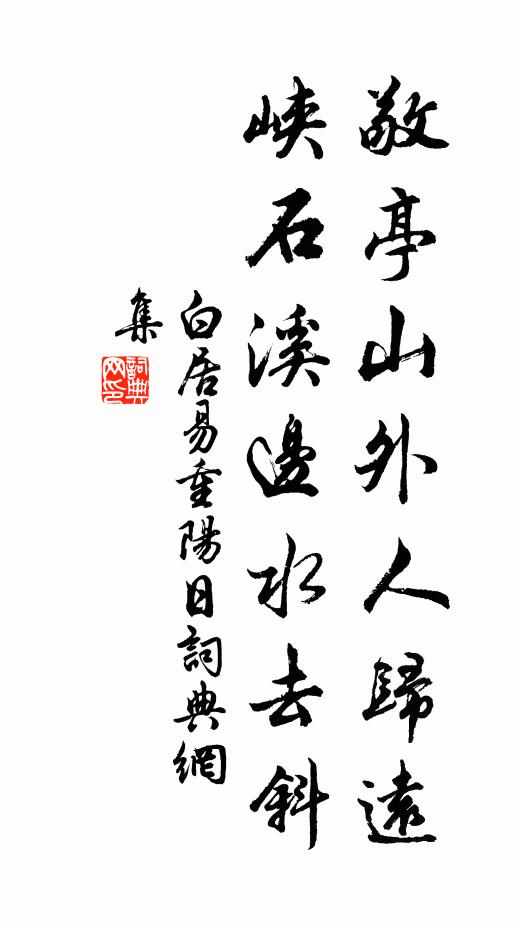 敬亭山外人歸遠
峽石溪邊水去斜
白居易重陽日詞典網
集
詞典網印